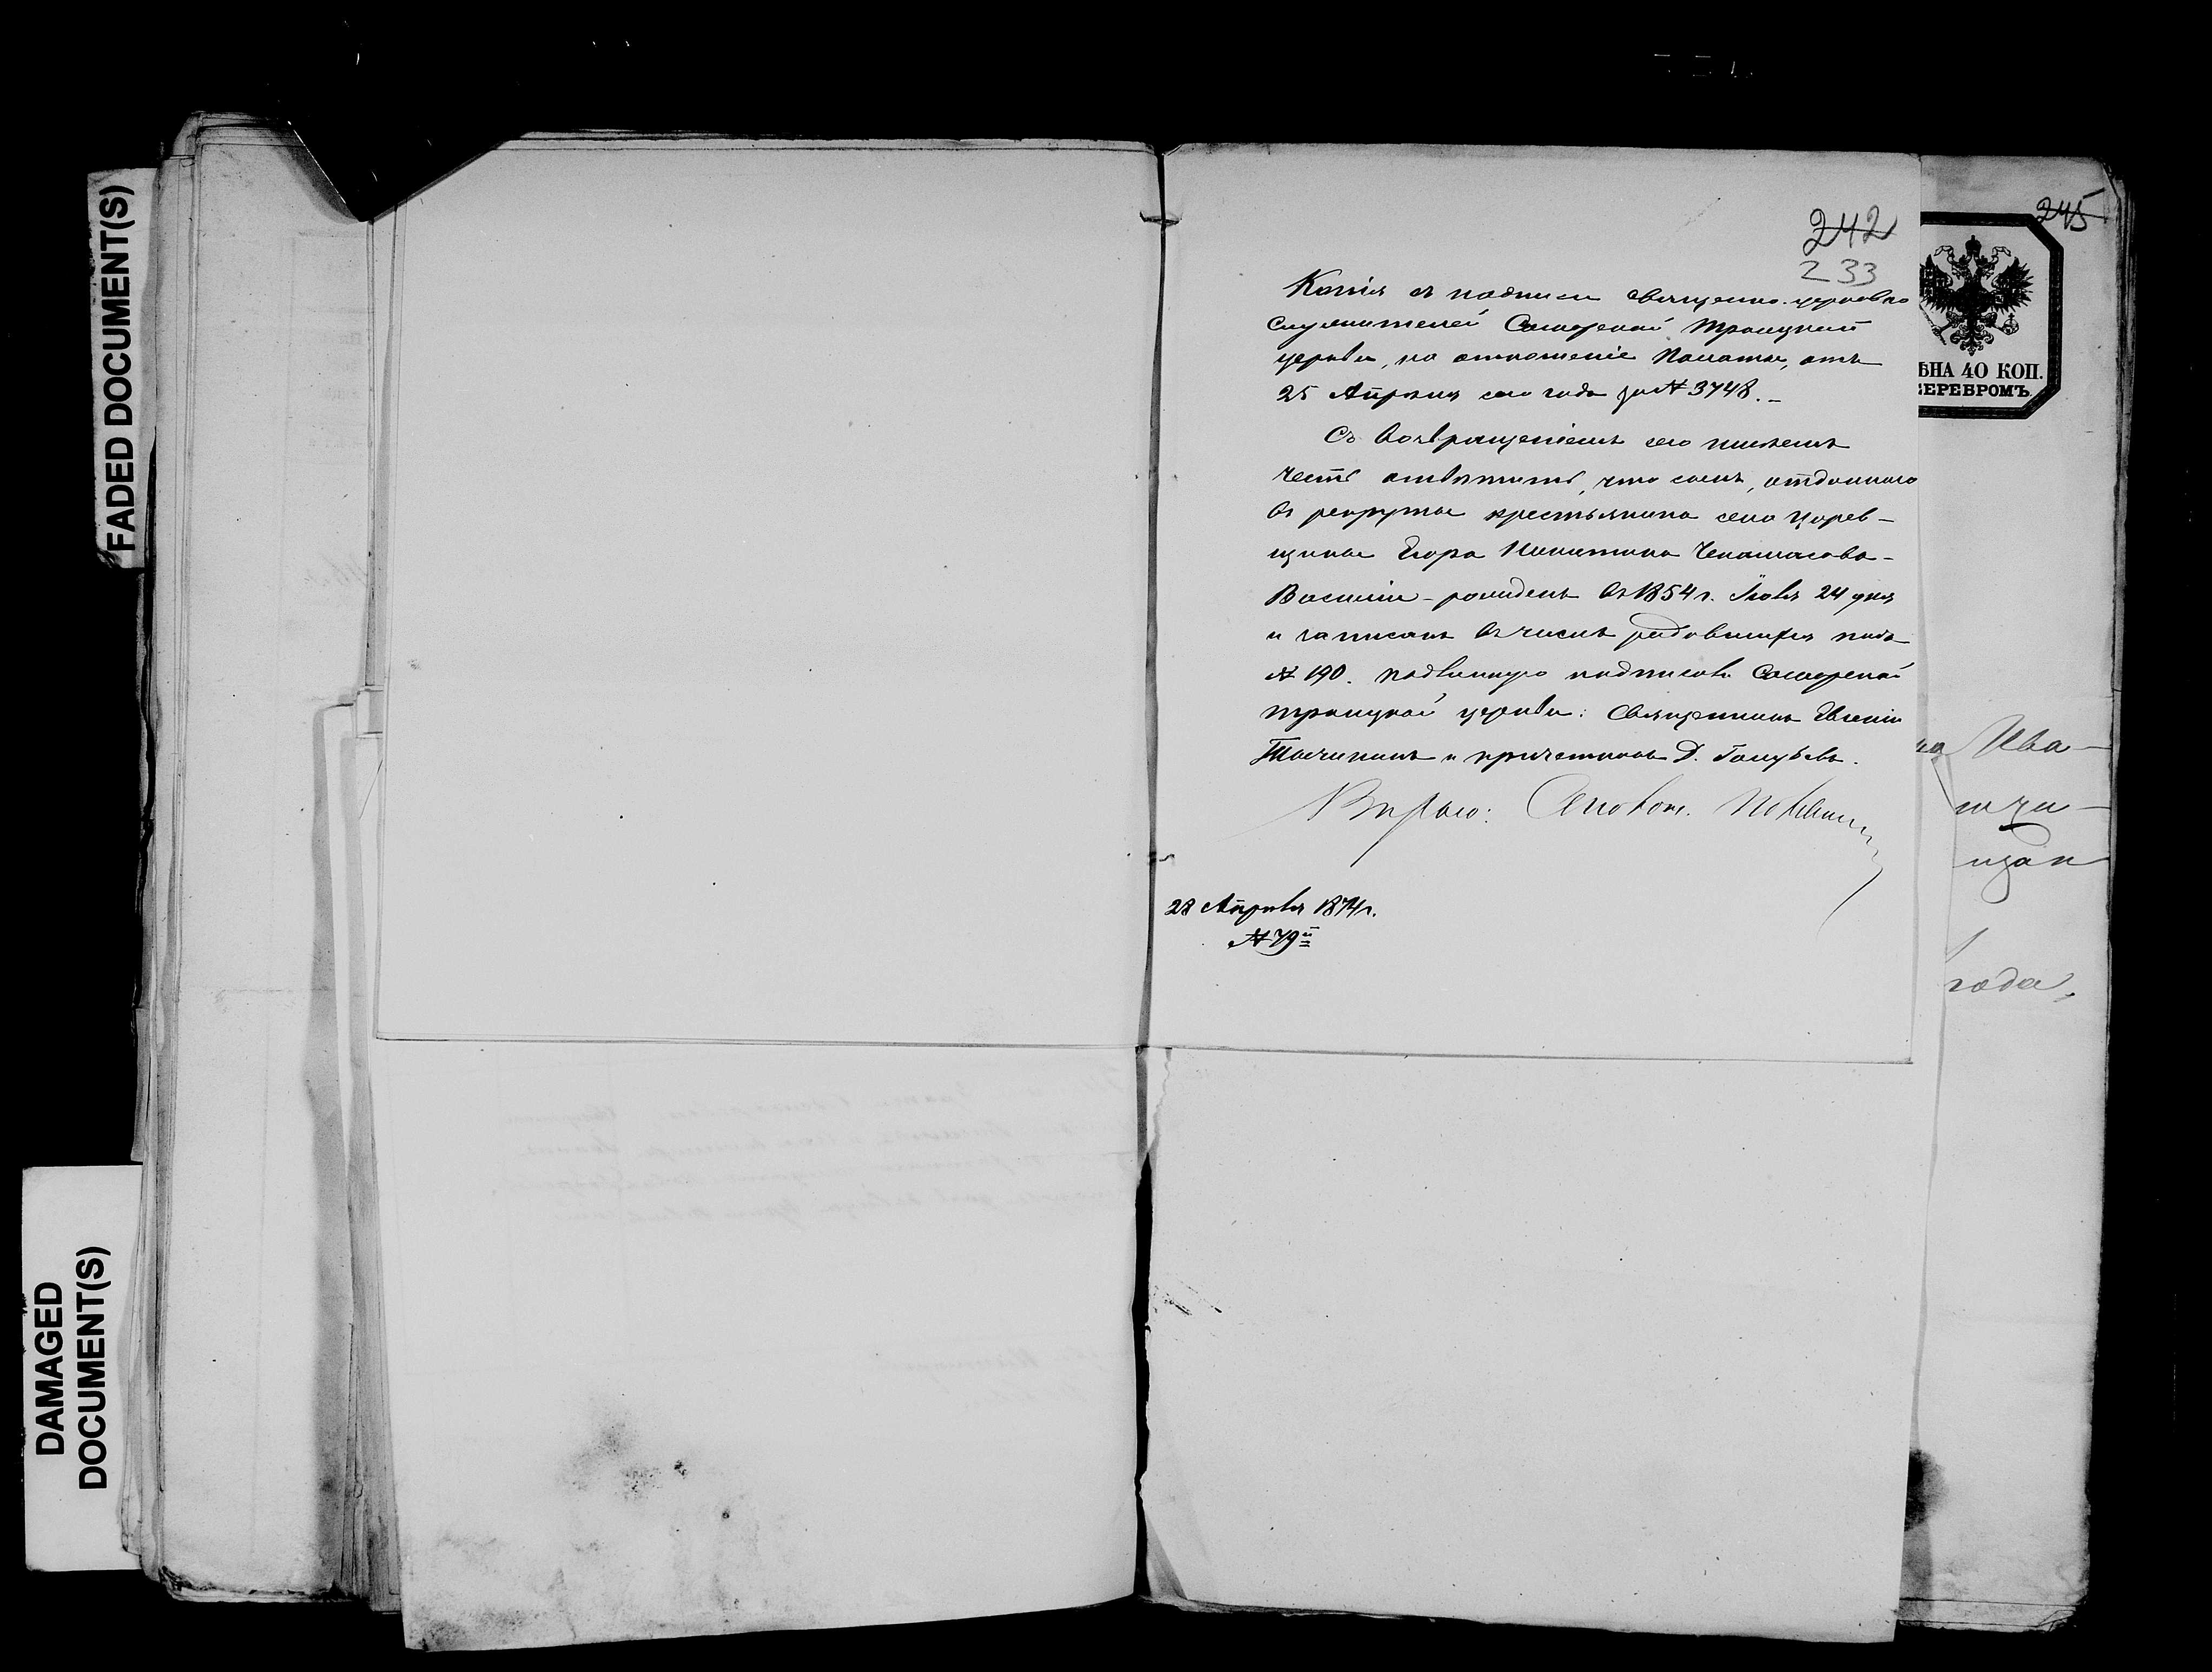 FADED DOCUMENT(S)
DAMAGED
DOCUMENT(S)
242
233
Копія съ надписи священно-церковно
служителей Самарской Троицкой
церкви, на отношеніе Палаты, отъ
25 Апрѣля сего года за № 3748.-
Съ возвращеніемъ сего имѣемъ
честь отвѣтить, что сынъ, отданнаго
въ рекруты крестьянина села Царев-
щины Егора Никитина
Василій - рожденъ въ 1854 г. 24 дня
и записанъ въ числѣ родившихся подъ
№ 190. подлинную подписали Самарской
троицкой церкви: Священникъ Евгеній
и причетникъ Д. Голубевъ.
Вѣрно:
28 Апрѣля 1874 г.
№ 79й
245
ѢНА 40 КОП.
ЕРЕБРОМЪ.
Ива-
года,